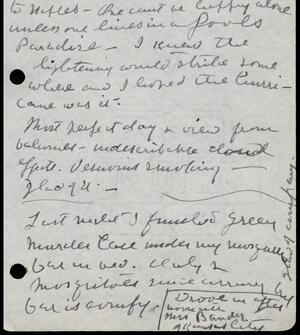 to Naples – One can't be happy alone
unless one lives in a fools
Paradise – I knew the
lightening would strike some
where and I hoped the hurri-
cane was it –
Most perfect day & view from
balconies – indescribable cloud
effects. Vesuvius smoking –
Last night I finished Green
Murder Case under my mosquito
bar in bed. Only 2
mosquitoes since arriving but
bar is comfy.
Drove in after
Mrs. Bender
of Kansas City